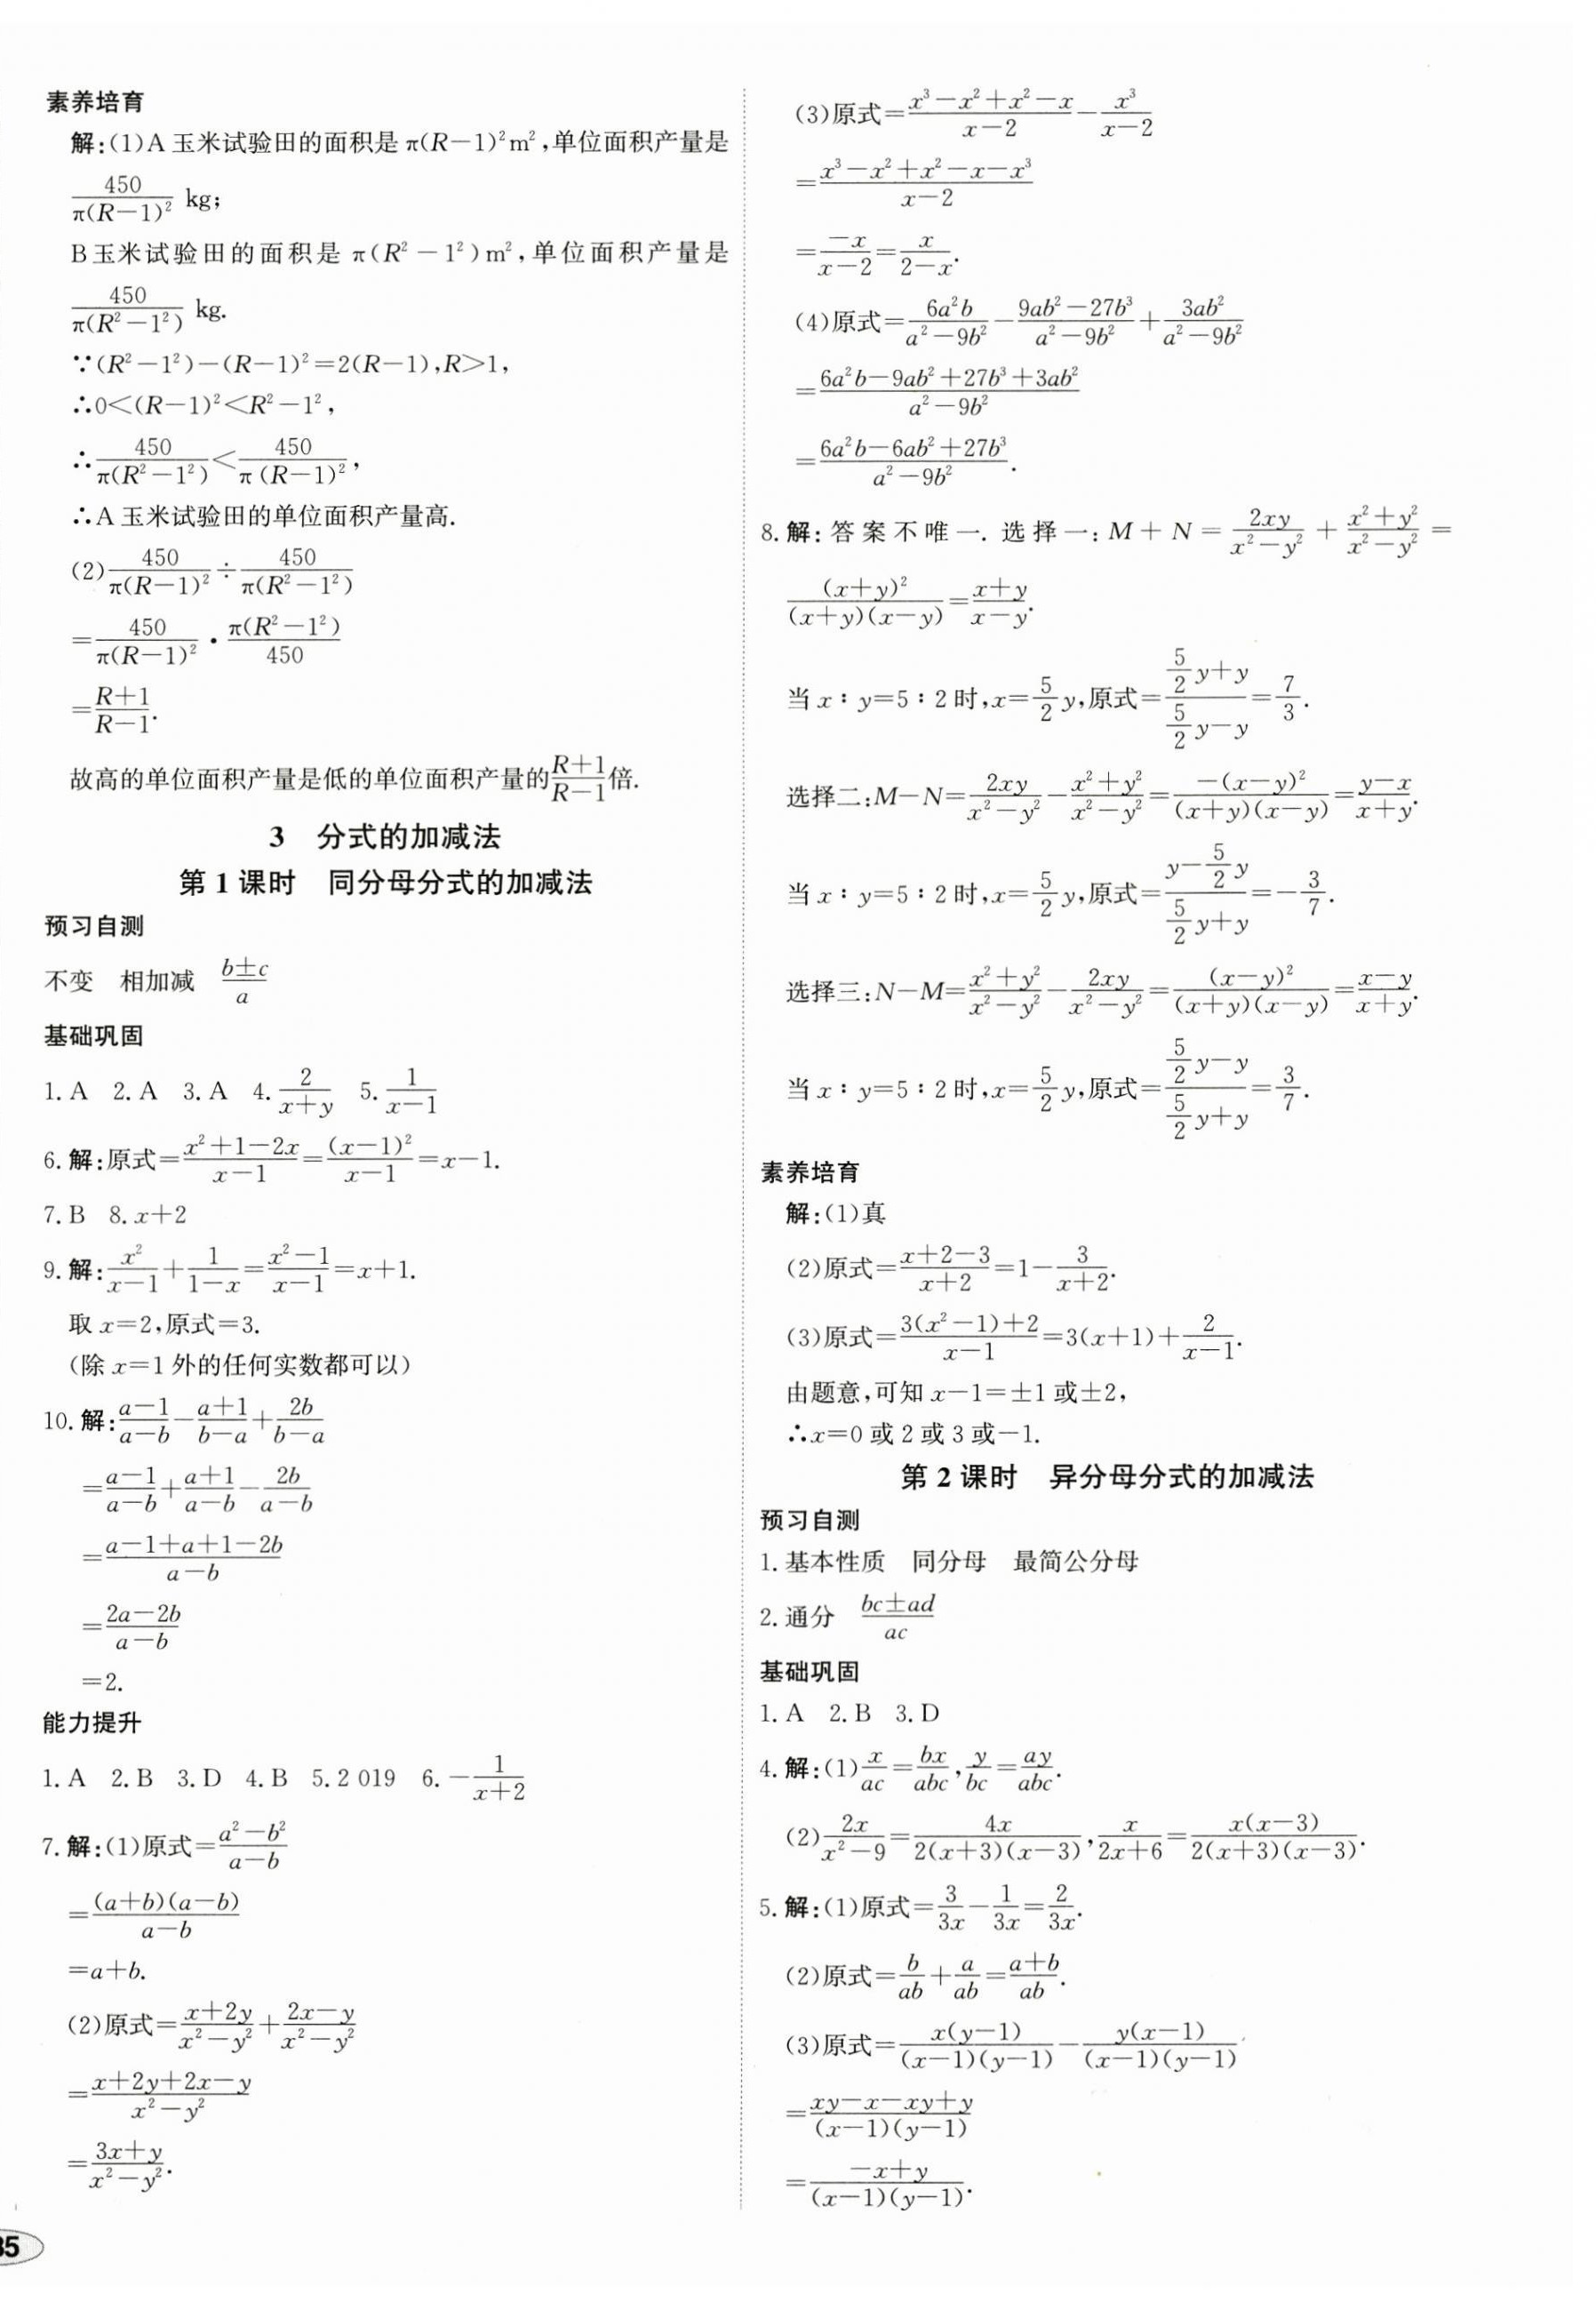 素养培育
解:(1)A 玉米试验田的面积是 π(R−1)²m²,单位面积产量是
450/(π(R−1)²) kg;
B 玉米试验田的面积是 π(R²−1²)m²,单位面积产量是
450/(π(R²−1²)) kg.
∵(R²−1²)−(R−1)²=2(R−1),R>1,
∴0<(R−1)²<R²−1²,
∴450/(π(R²−1²))<450/(π(R−1)²),
∴A 玉米试验田的单位面积产量高.
(2)450/(π(R−1)²)÷450/(π(R²−1²))
=450/(π(R−1)²)·π(R²−1²)/450
=(R+1)/(R−1).
故高的单位面积产量是低的单位面积产量的(R+1)/(R−1)倍.
3 分式的加减法
第 1 课时 同分母分式的加减法
预习自测
不变 相加减 (b±c)/a
基础巩固
1. A 2. A 3. A 4. 2/(x+y) 5. 1/(x−1)
6. 解:原式=(x²+1−2x)/(x−1)=(x−1)²/(x−1)=x−1.
7. B 8. x+2
9. 解:x²/(x−1)+1/(1−x)=(x²−1)/(x−1)=x+1.
取 x=2,原式=3.
(除 x=1 外的任何实数都可以)
10. 解:(a−1)/(a−b)−(a+1)/(b−a)+2b/(b−a)
=(a−1)/(a−b)+(a+1)/(a−b)−2b/(a−b)
=(a−1+a+1−2b)/(a−b)
=(2a−2b)/(a−b)
=2.
能力提升
1. A 2. B 3. D 4. B 5. 2 019 6. −1/(x+2)
7. 解:(1)原式=(a²−b²)/(a−b)
=(a+b)(a−b)/(a−b)
=a+b.
(2)原式=(x+2y)/(x²−y²)+(2x−y)/(x²−y²)
=(x+2y+2x−y)/(x²−y²)
=(3x+y)/(x²−y²).
35
(3)原式=(x³−x²+x²−x)/(x−2)−x³/(x−2)
=(x³−x²+x²−x−x³)/(x−2)
=−x/(x−2)=x/(2−x).
(4)原式=6a²b/(a²−9b²)−(9ab²−27b³)/(a²−9b²)+3ab²/(a²−9b²)
=(6a²b−9ab²+27b³+3ab²)/(a²−9b²)
=(6a²b−6ab²+27b³)/(a²−9b²).
8. 解:答案不唯一. 选择一:M+N=2xy/(x²−y²)+(x²+y²)/(x²−y²)=
(x+y)²/((x+y)(x−y))=(x+y)/(x−y).
当 x∶y=5∶2 时,x=5/2 y,原式=(5/2 y+y)/(5/2 y−y)=7/3.
选择二:M−N=2xy/(x²−y²)−(x²+y²)/(x²−y²)=−(x−y)²/((x+y)(x−y))=(y−x)/(x+y).
当 x∶y=5∶2 时,x=5/2 y,原式=(y−5/2 y)/(5/2 y+y)=−3/7.
选择三:N−M=(x²+y²)/(x²−y²)−2xy/(x²−y²)=(x−y)²/((x+y)(x−y))=(x−y)/(x+y).
当 x∶y=5∶2 时,x=5/2 y,原式=(5/2 y−y)/(5/2 y+y)=3/7.
素养培育
解:(1)真
(2)原式=(x+2−3)/(x+2)=1−3/(x+2).
(3)原式=(3(x²−1)+2)/(x−1)=3(x+1)+2/(x−1).
由题意,可知 x−1=±1 或±2,
∴x=0 或 2 或 3 或−1.
第 2 课时 异分母分式的加减法
预习自测
1. 基本性质 同分母 最简公分母
2. 通分 (bc±ad)/ac
基础巩固
1. A 2. B 3. D
4. 解:(1)x/ac=bx/abc,y/bc=ay/abc.
(2)2x/(x²−9)=4x/(2(x+3)(x−3)),x/(2x+6)=x(x−3)/(2(x+3)(x−3)).
5. 解:(1)原式=3/3x−1/3x=2/3x.
(2)原式=b/ab+a/ab=(a+b)/ab.
(3)原式=x(y−1)/((x−1)(y−1))−y(x−1)/((x−1)(y−1))
=(xy−x−xy+y)/((x−1)(y−1))
=(−x+y)/((x−1)(y−1)).